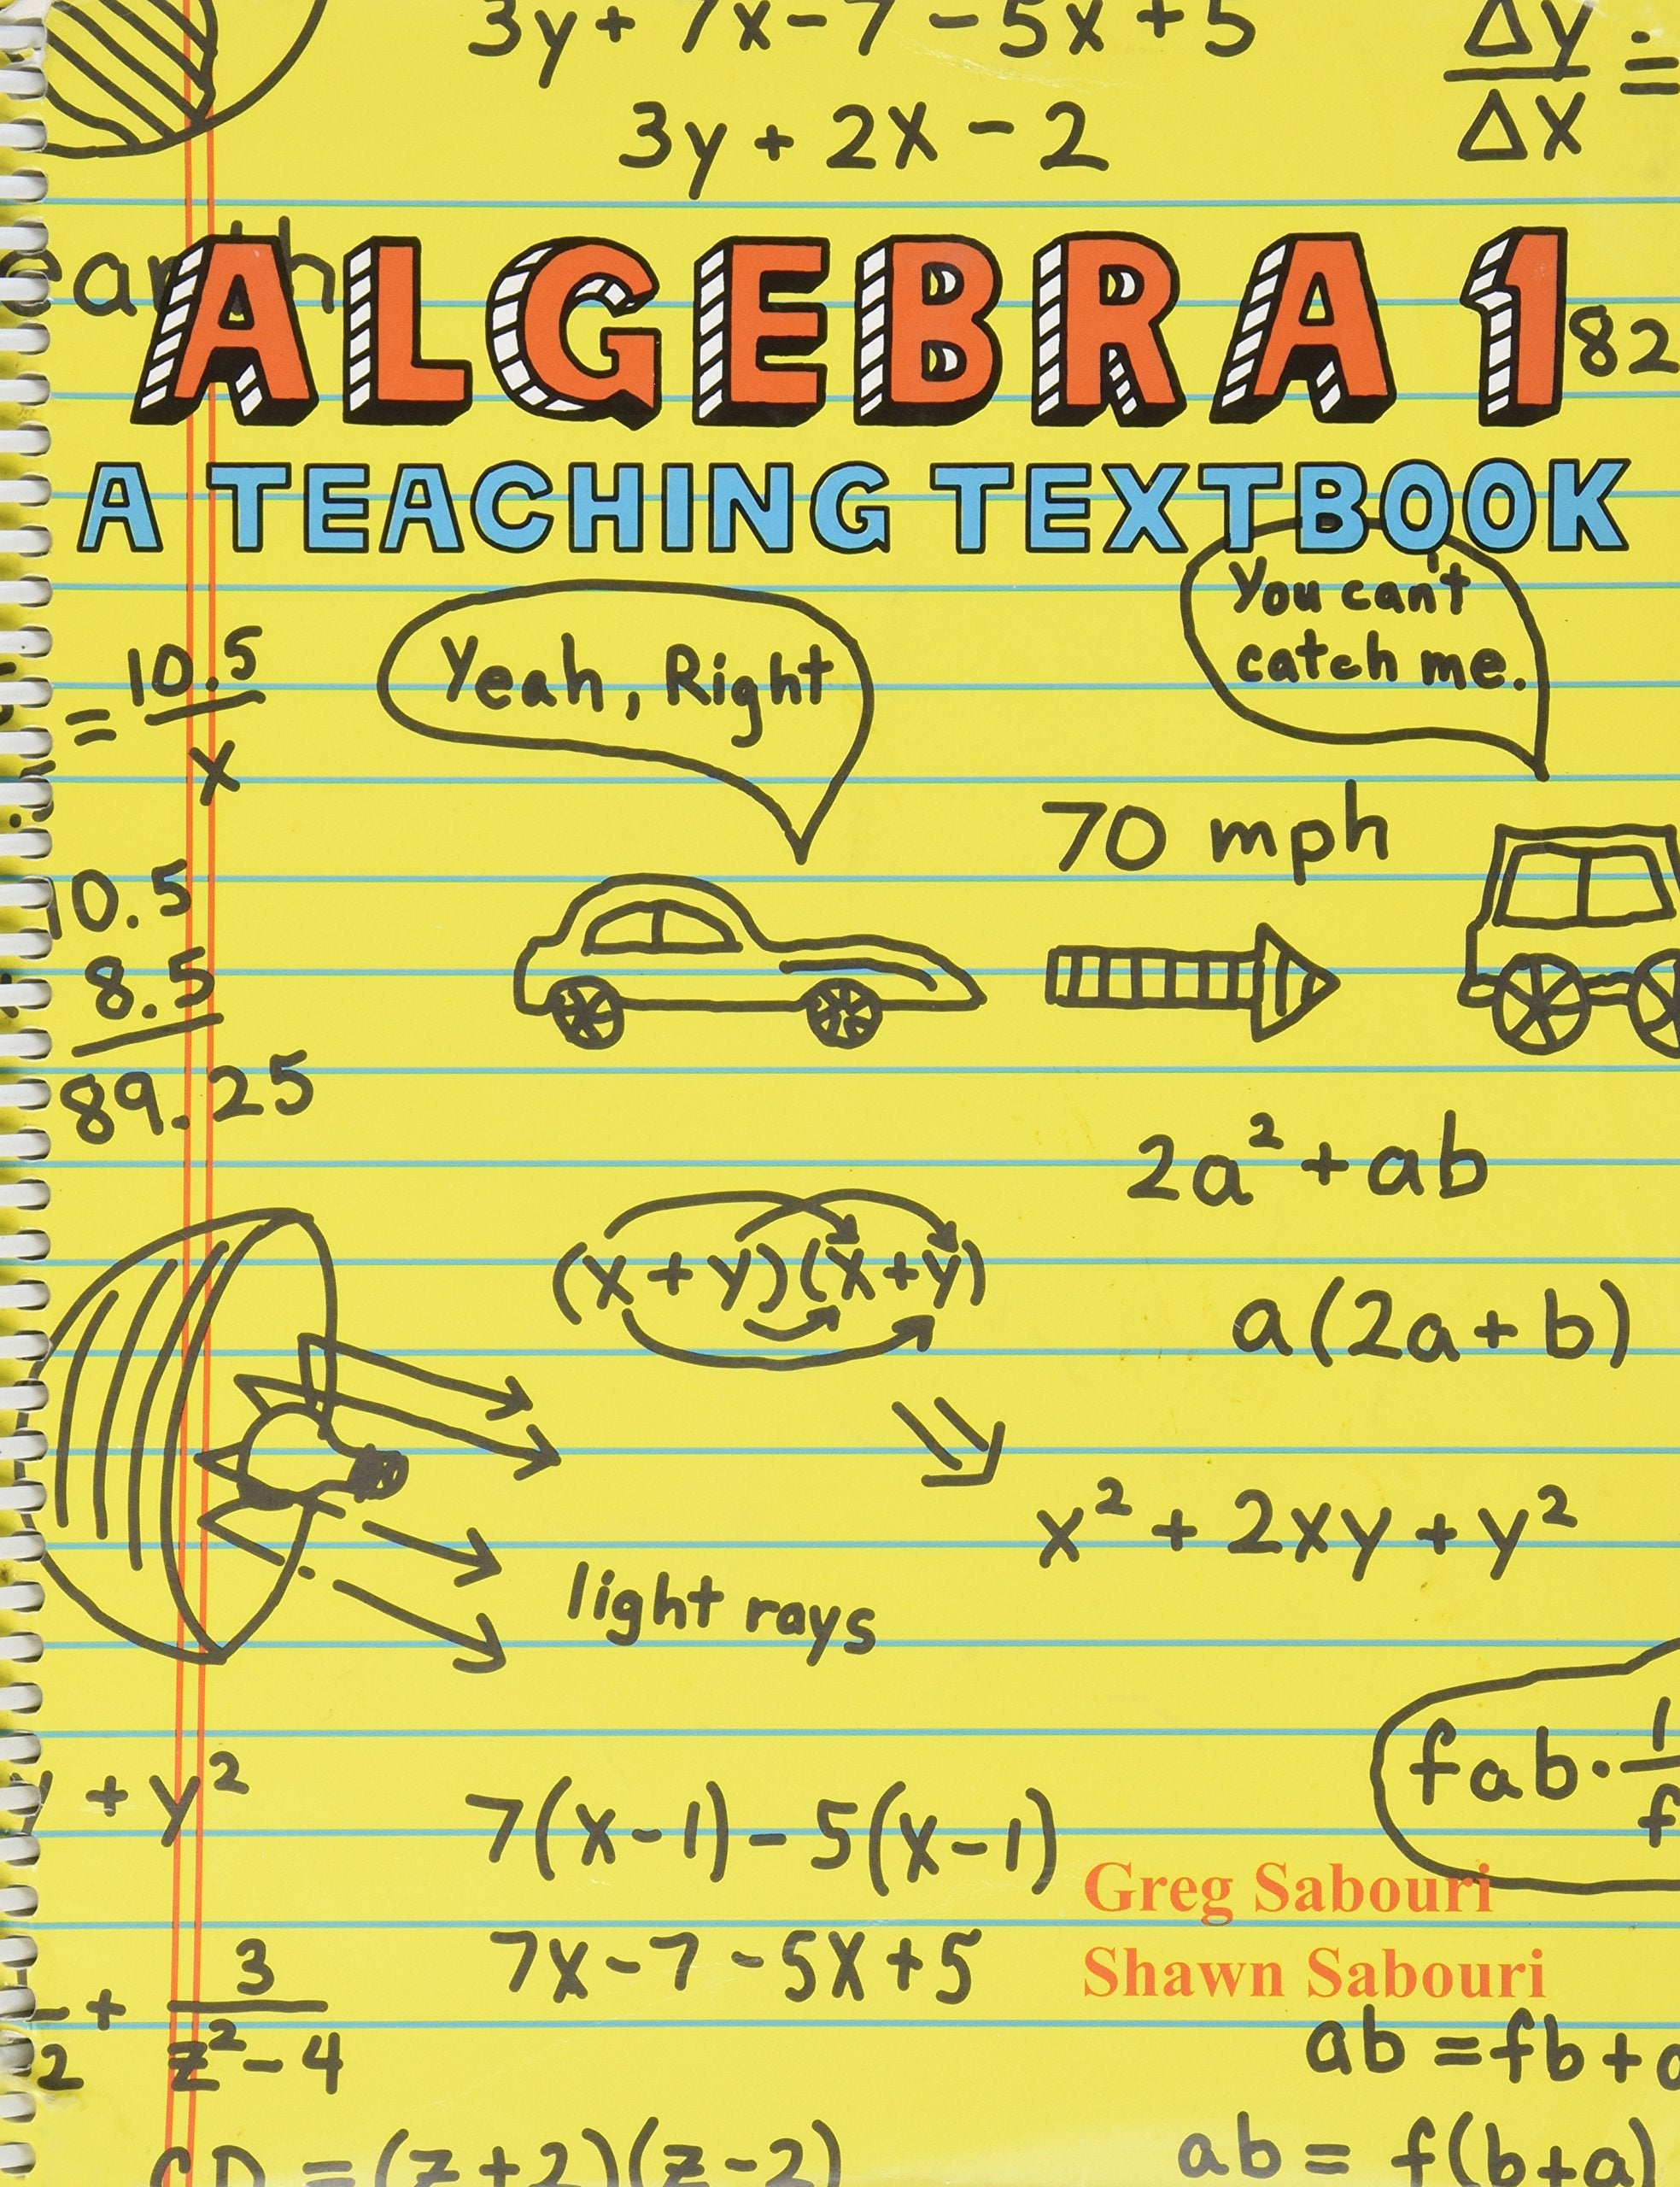 3y + 7x - 7 - 5x + 5
Δy =
Δx
3y + 2x - 2
ALGEBRA 1
82
A TEACHING TEXTBOOK
You can't
catch me.
Yeah, Right
= 10.5
x
70 mph
10.5
8.5
89.25
2a² + ab
(x + y)(x + y)
a(2a + b)
x² + 2xy + y²
light rays
fab · 1
f
+ y²
7(x - 1) - 5(x - 1)
Greg Sabouri
7x - 7 - 5x + 5
Shawn Sabouri
+ 3
2 z² - 4
ab = fb +
= (z + 2)(z - 2)
ab = f(b + a)